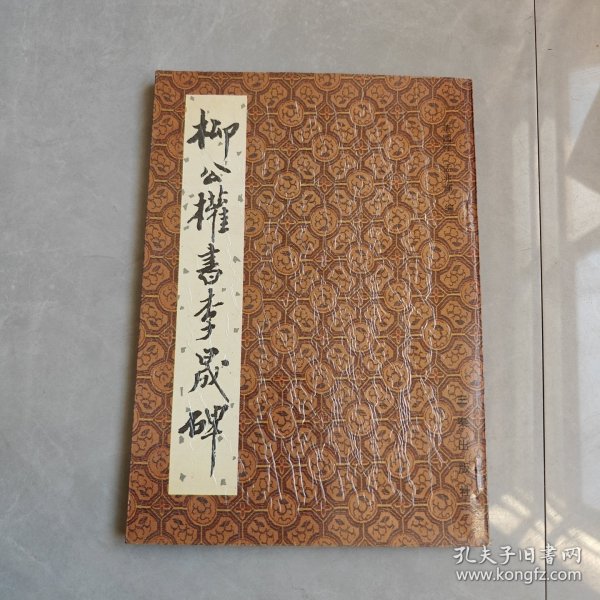 柳公權書李晟碑
三秦出版社
孔夫子旧书网
www.kongfz.com